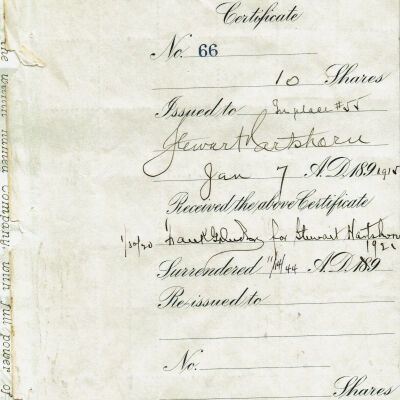 Certificate
No. 66
10 Shares
Issued to In place #55
Stewart Hartshorn
Jan 7 A.D. 189 1915
Received the above Certificate
1/20/20 for Stewart Hartshorn
1921
Surrendered 11/14/44 A.D. 189
Re-issued to
No.
Shares
the within named Company, with full power of